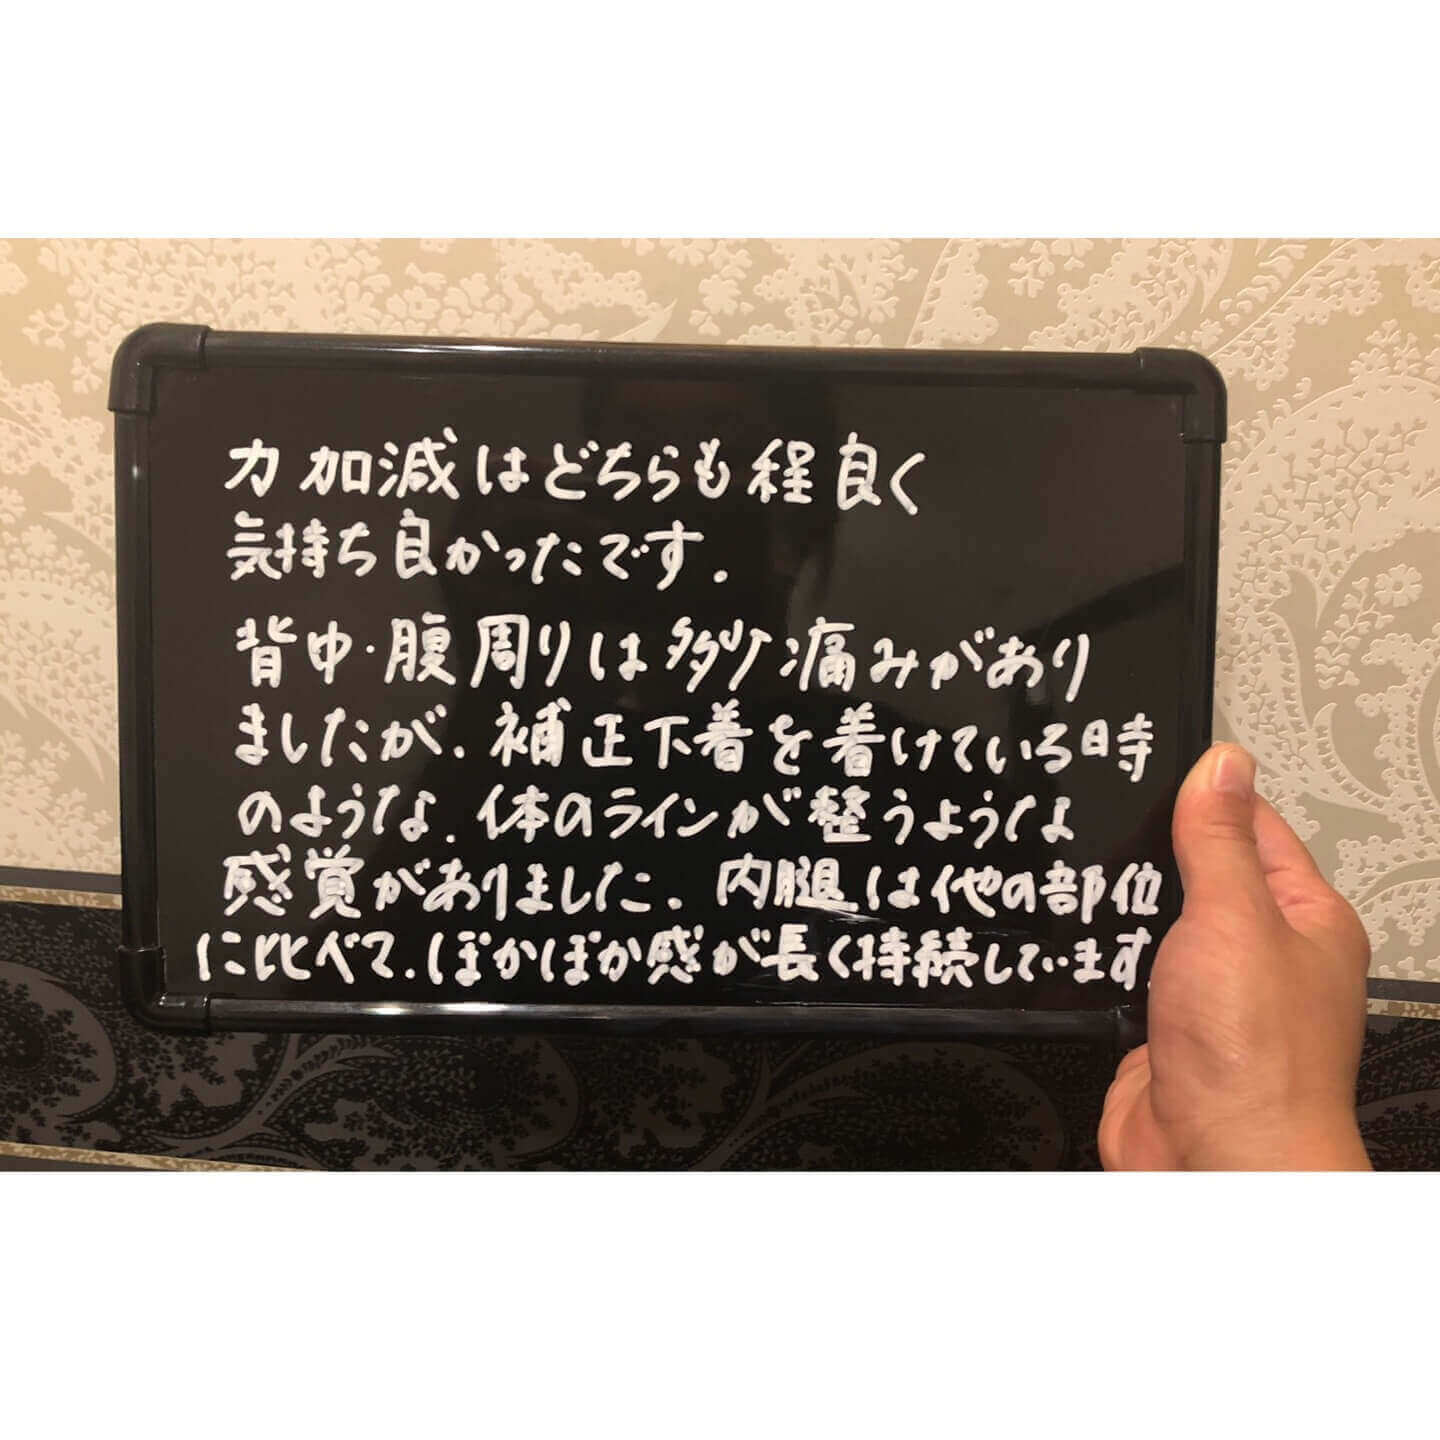 力加減はどちらも程良く
気持ち良かったです.
背中・腹周りは多少痛みがあり
ましたが、補正下着を着けている時
のような、体のラインが整うような
感覚がありました. 内腿は他の部位
に比べて、ぽかぽか感が長く持続しています.